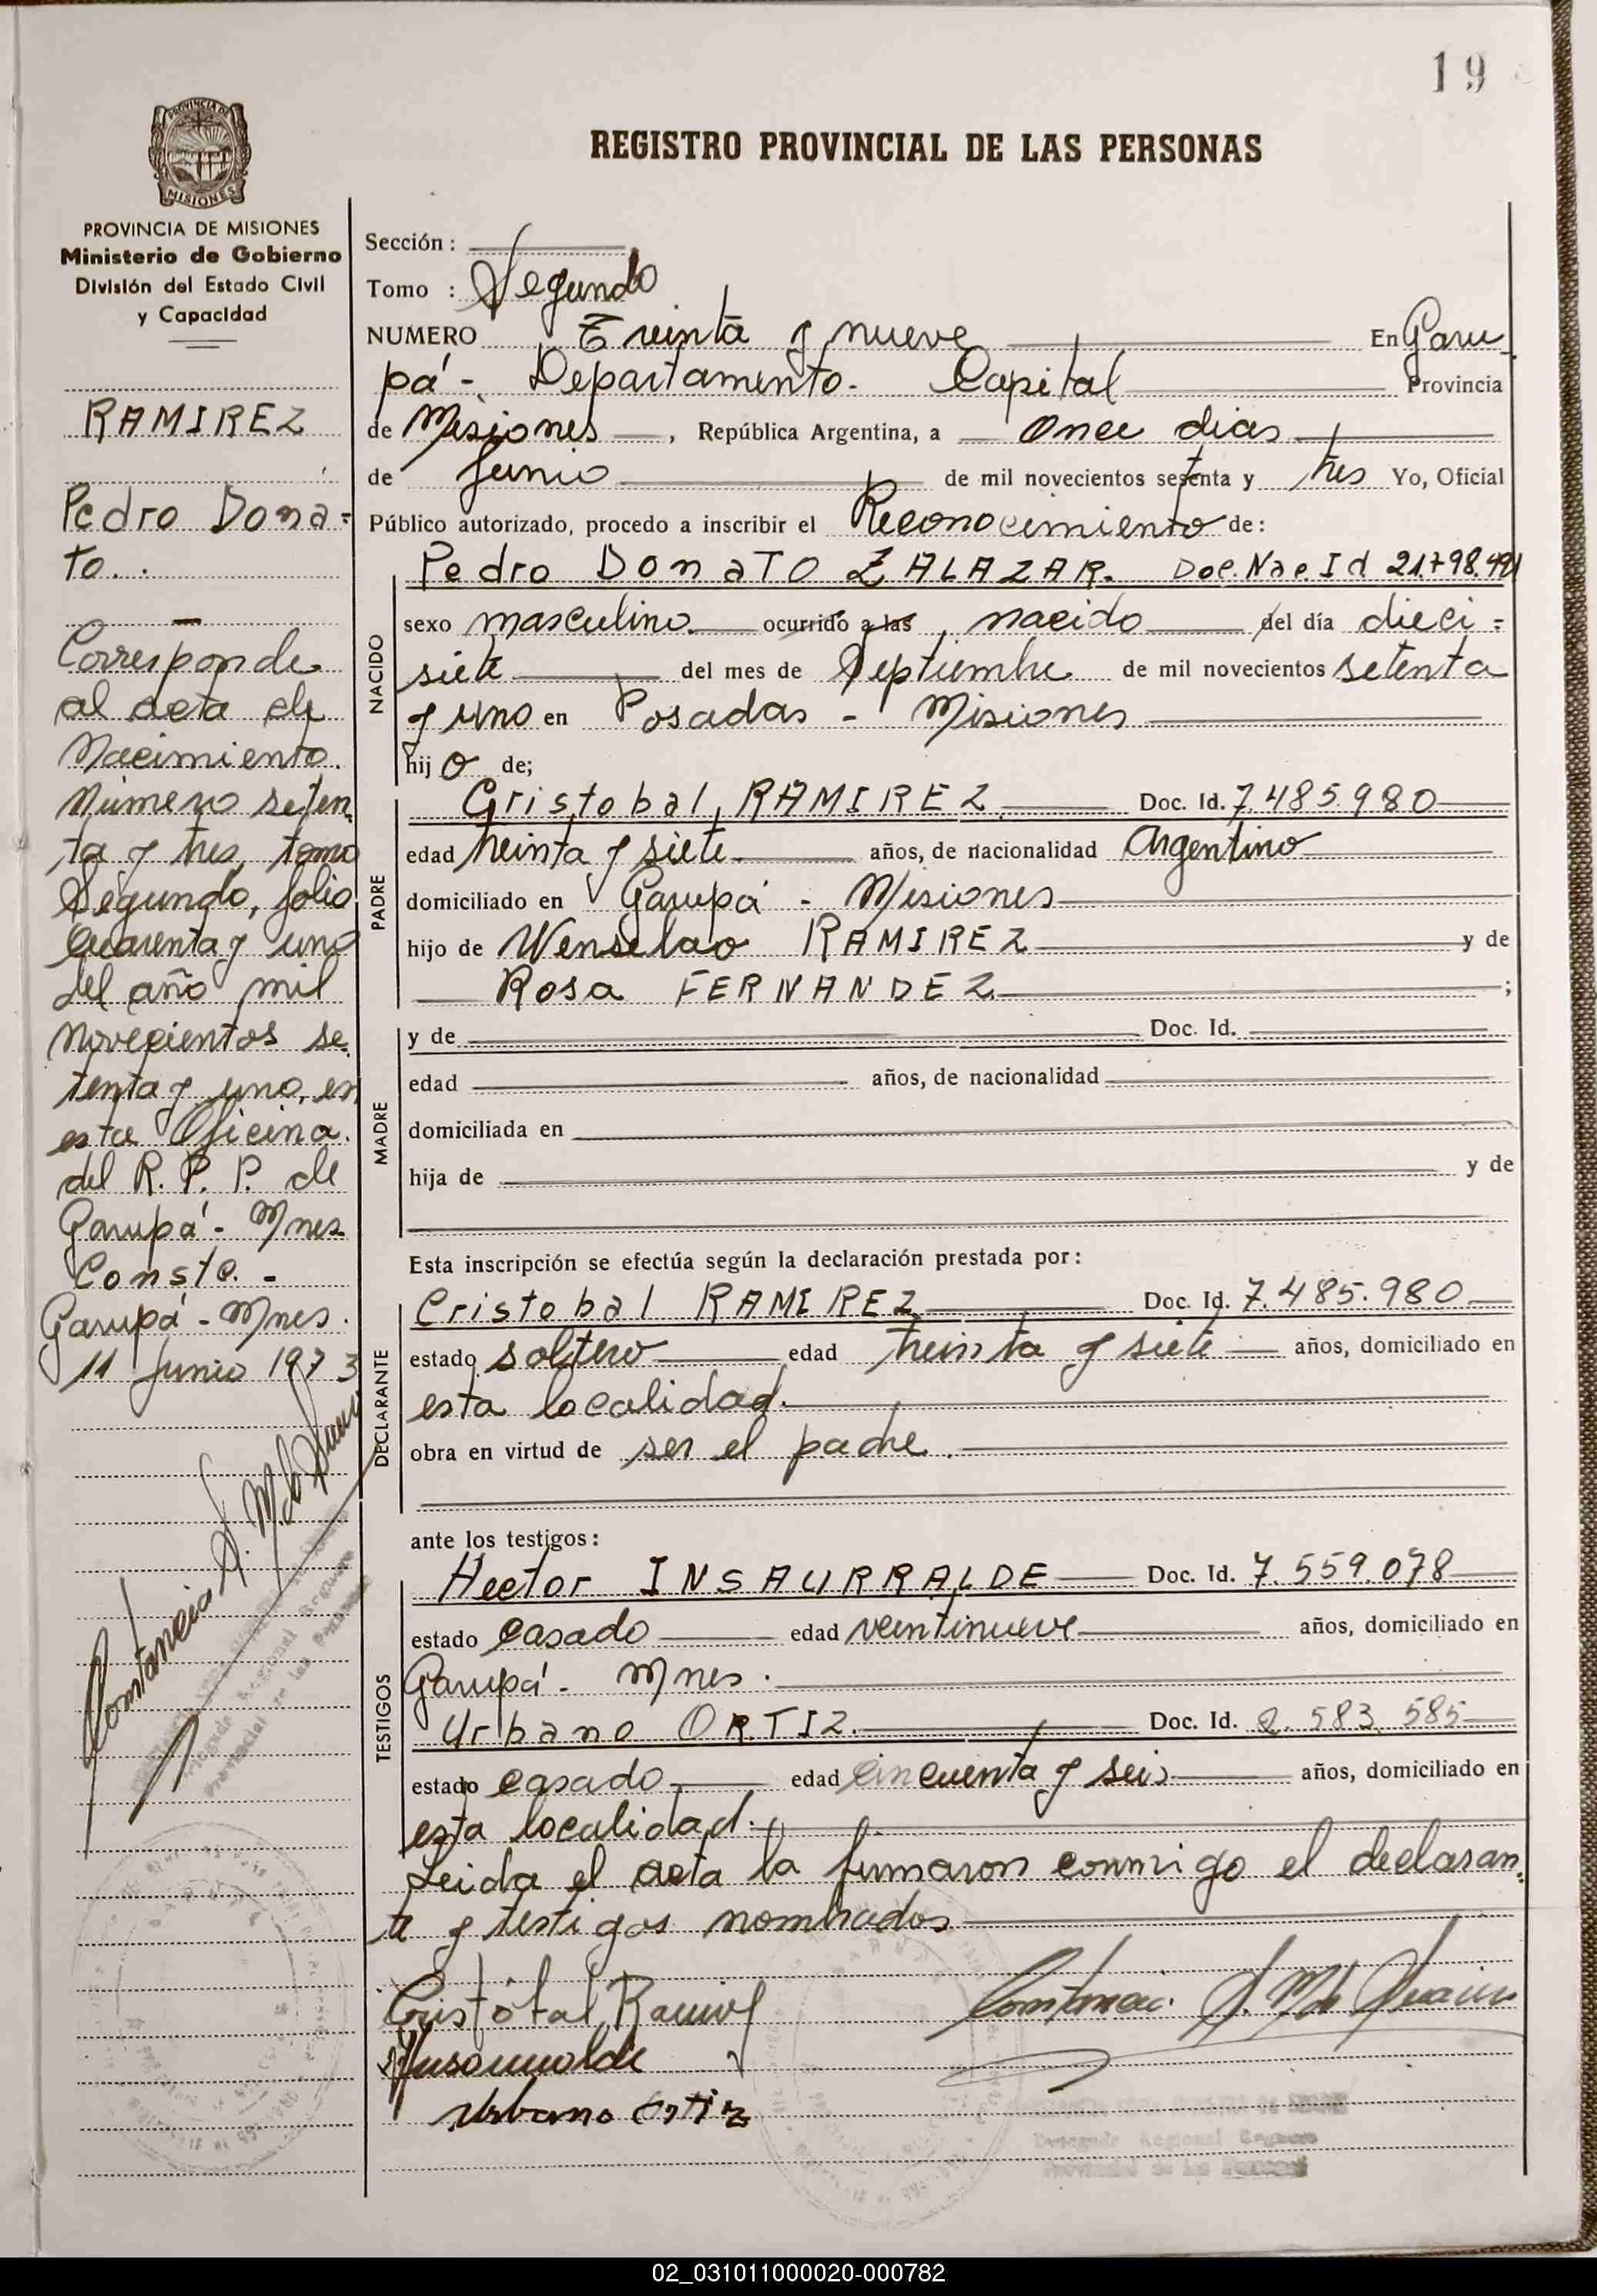 19
REGISTRO PROVINCIAL DE LAS PERSONAS
PROVINCIA DE
MISIONES
PROVINCIA DE MISIONES
Ministerio de Gobierno
División del Estado Civil
y Capacidad
RAMIREZ
Pedro Dona=
to..
Corresponde
al acta de
Nacimiento.
Número seten
ta y tres, tomo
Segundo, folio
Cuarenta y uno
del año mil
novecientos se
tenta y uno, en
esta Oficina.
del R. P. P. de
Garupá - Mnes
Conste. -
Garupá - Mnes.
11 Junio 1973
Constancia A. M. de
Sección :
Tomo : Segundo
NUMERO Treinta y nueve En Garu
pá - Departamento - Capital Provincia
de Misiones , República Argentina, a once dias
de Junio de mil novecientos setenta y tres Yo, Oficial
Público autorizado, procedo a inscribir el Reconocimiento de:
Pedro DONATO ZALAZAR. Doc. Nac. Id
NACIDO
sexo masculino ocurrido a las , nacido del día dieci=
siete del mes de Septiembre de mil novecientos setenta
y uno en Posadas - Misiones
hij o de;
PADRE
Cristobal, RAMIREZ Doc. Id. 7.485.980
edad treinta y siete años, de nacionalidad Argentino
domiciliado en Garupá - Misiones
hijo de Wenselao RAMIREZ y de
Rosa FERNANDEZ ;
MADRE
y de Doc. Id.
edad años, de nacionalidad
domiciliada en
hija de y de
Esta inscripción se efectúa según la declaración prestada por:
DECLARANTE
Cristobal RAMIREZ Doc. Id. 7.485.980
estado soltero edad treinta y siete años, domiciliado en
esta localidad.
obra en virtud de ser el padre.
ante los testigos:
TESTIGOS
Hector INSAURRALDE Doc. Id. 7.559.078
estado casado edad veintinueve años, domiciliado en
Garupá - Mnes.
Urbano ORTIZ. Doc. Id. 2.583.585
estado casado edad cincuenta y seis años, domiciliado en
esta localidad.
Leida el acta la firmaron conmigo el declaran
te y testigos nombrados
Cristóbal Ramirez
Constancia A. M. de
Insaurralde
Urbano Ortiz
Delegado Regional Organo
Provincial de las Personas
02_031011000020-000782